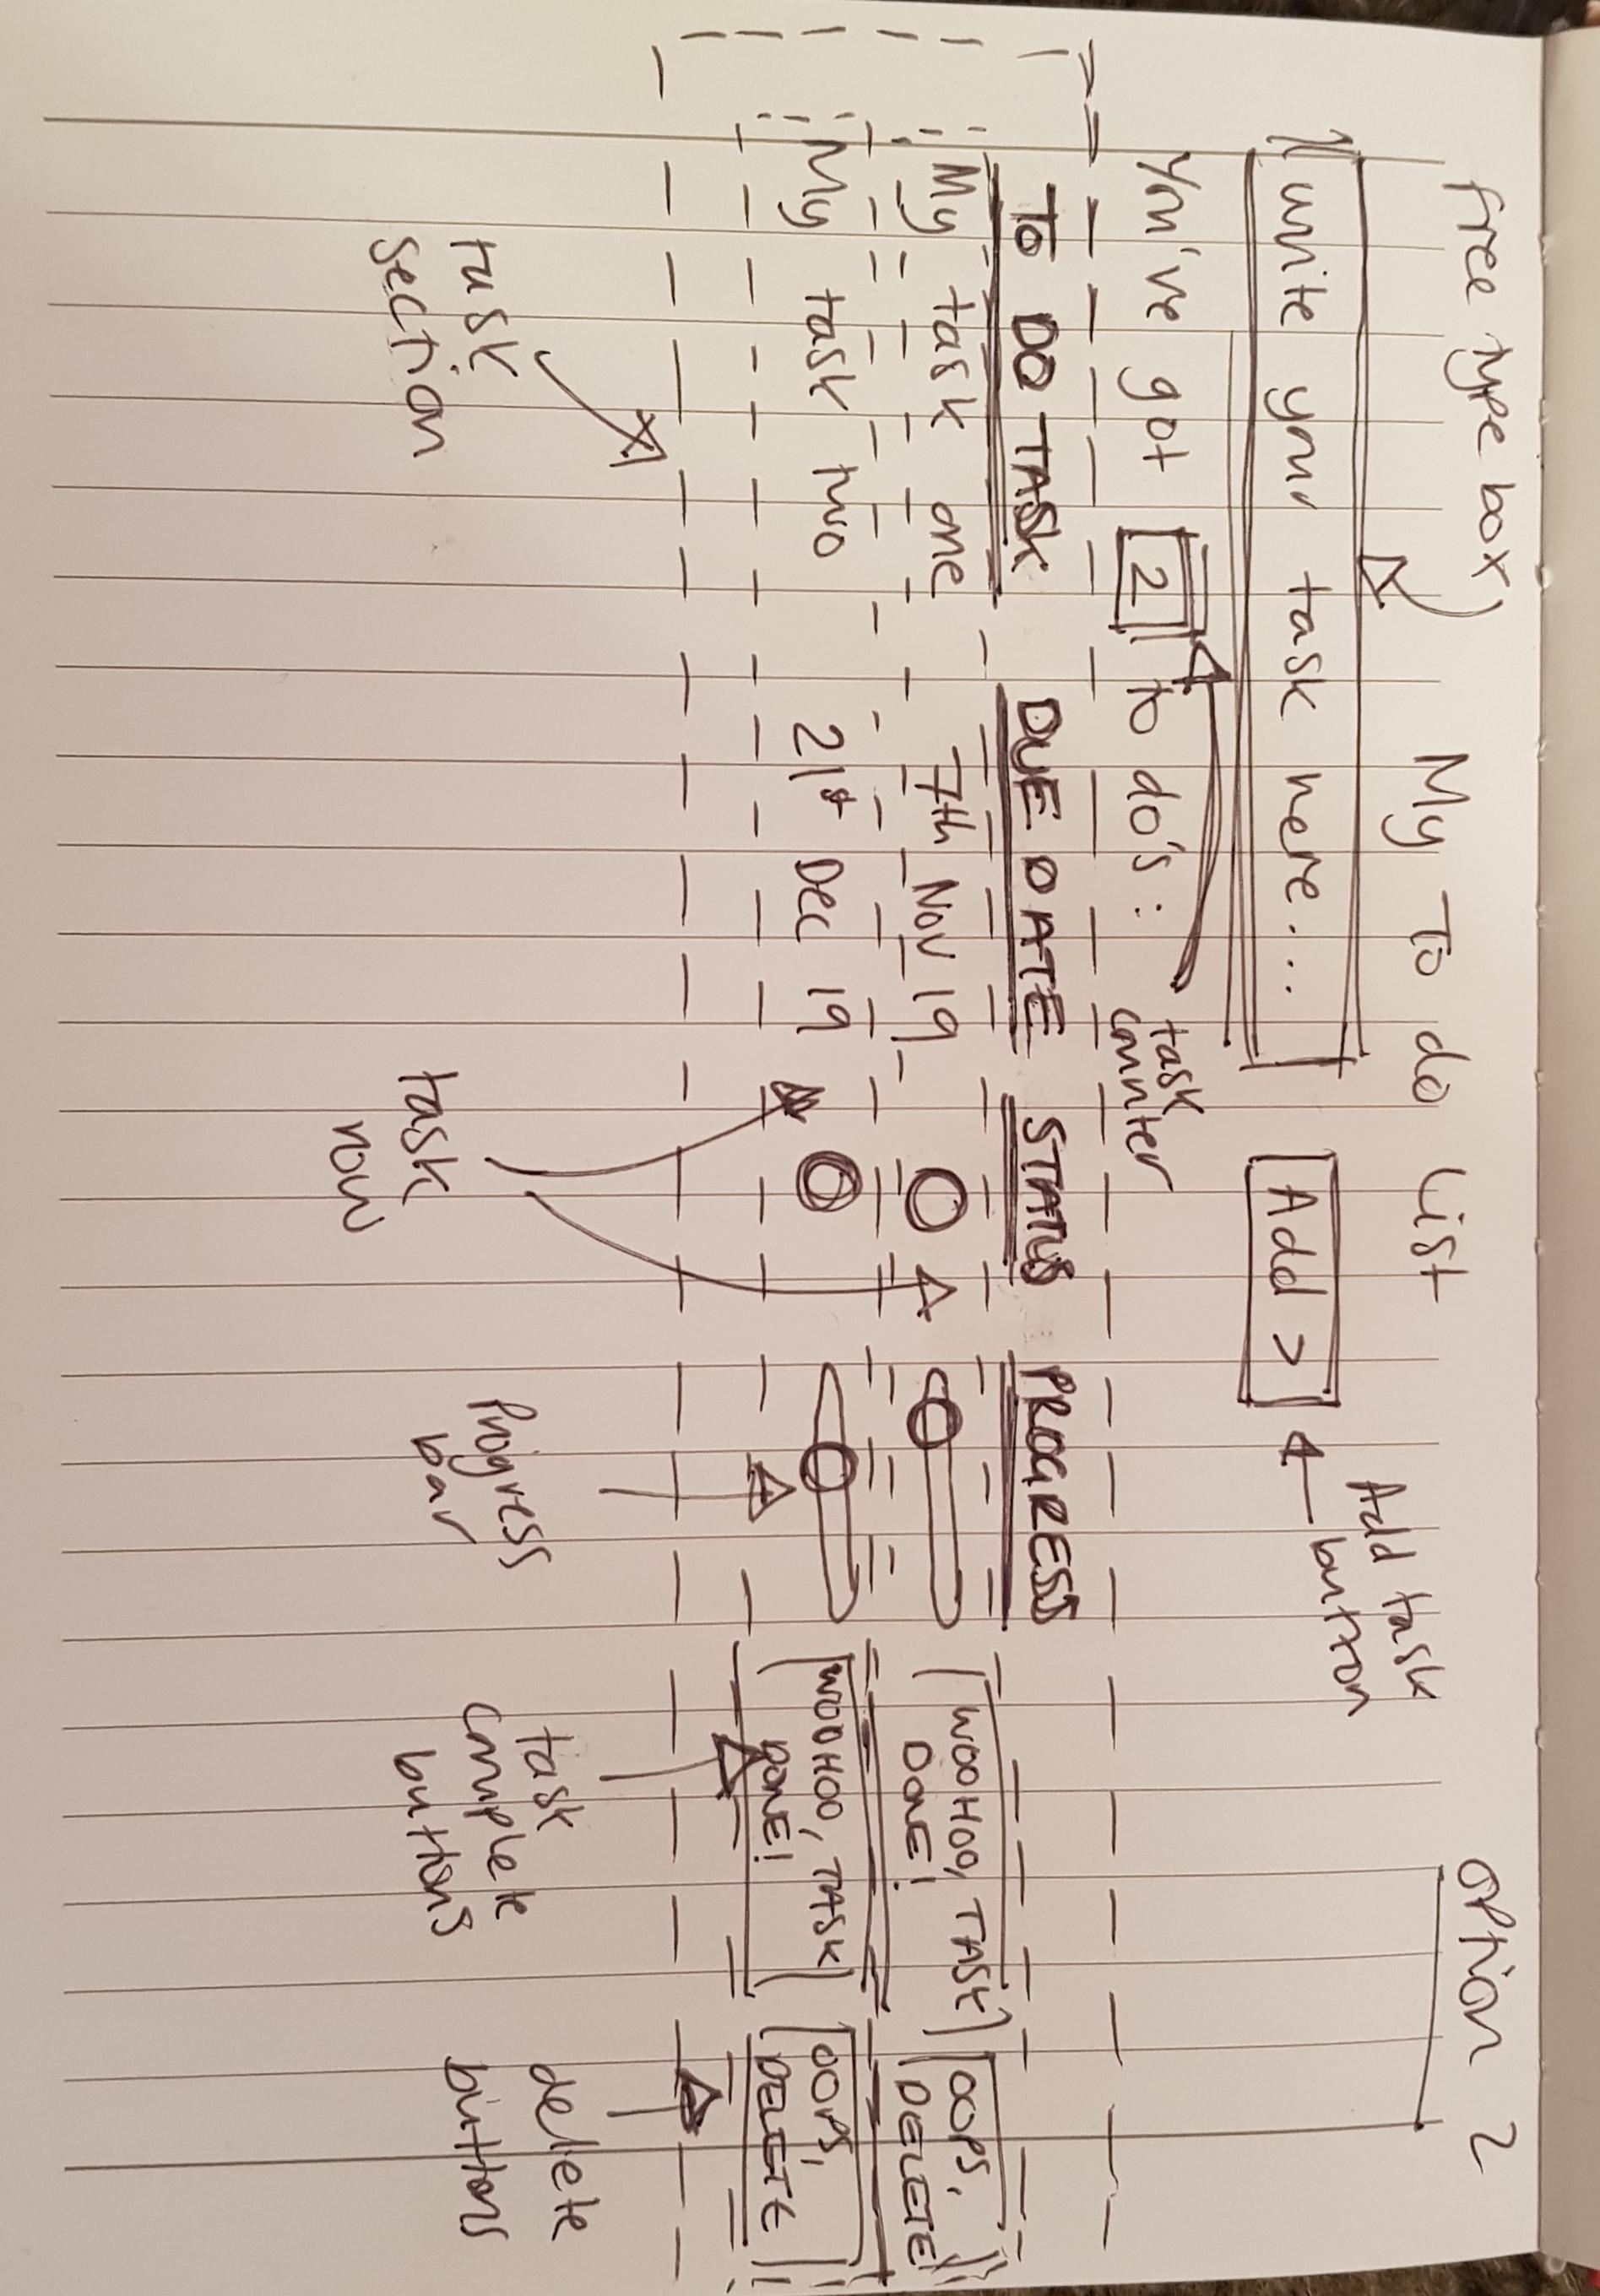 OPTION 2
free type box
My To do List
Add task
button
write your task here....
Add >
You've got 2 to do's:
task
counter
TO DO TASK DUE DATE STATUS PROGRESS
My task one 7th Nov 19 WOOHOO, TASK DONE! OOPS, DELETE
My task two 21st Dec 19 WOOHOO, TASK DONE! OOPS, DELETE
task
section
task
row
Progress
bar
task
complete
buttons
delete
buttons